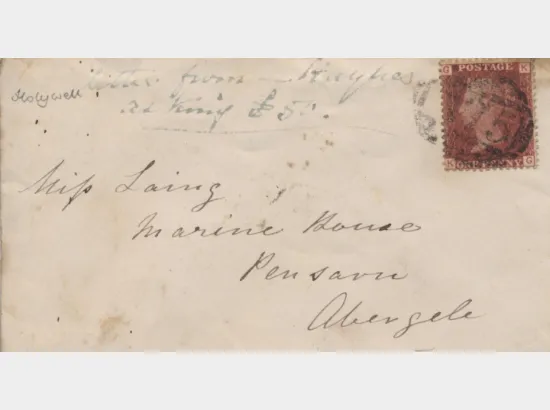 Letter from Hughes
asking £5.
Holywell
G K
POSTAGE
ONE PENNY
K G
Miss Laing
Marine House
Pensarn
Abergele